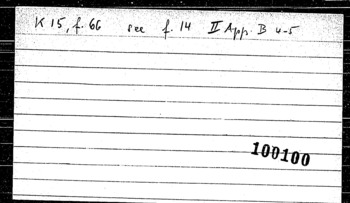 K 15, f. 66 see f. 14 II App. B 4-5
100100